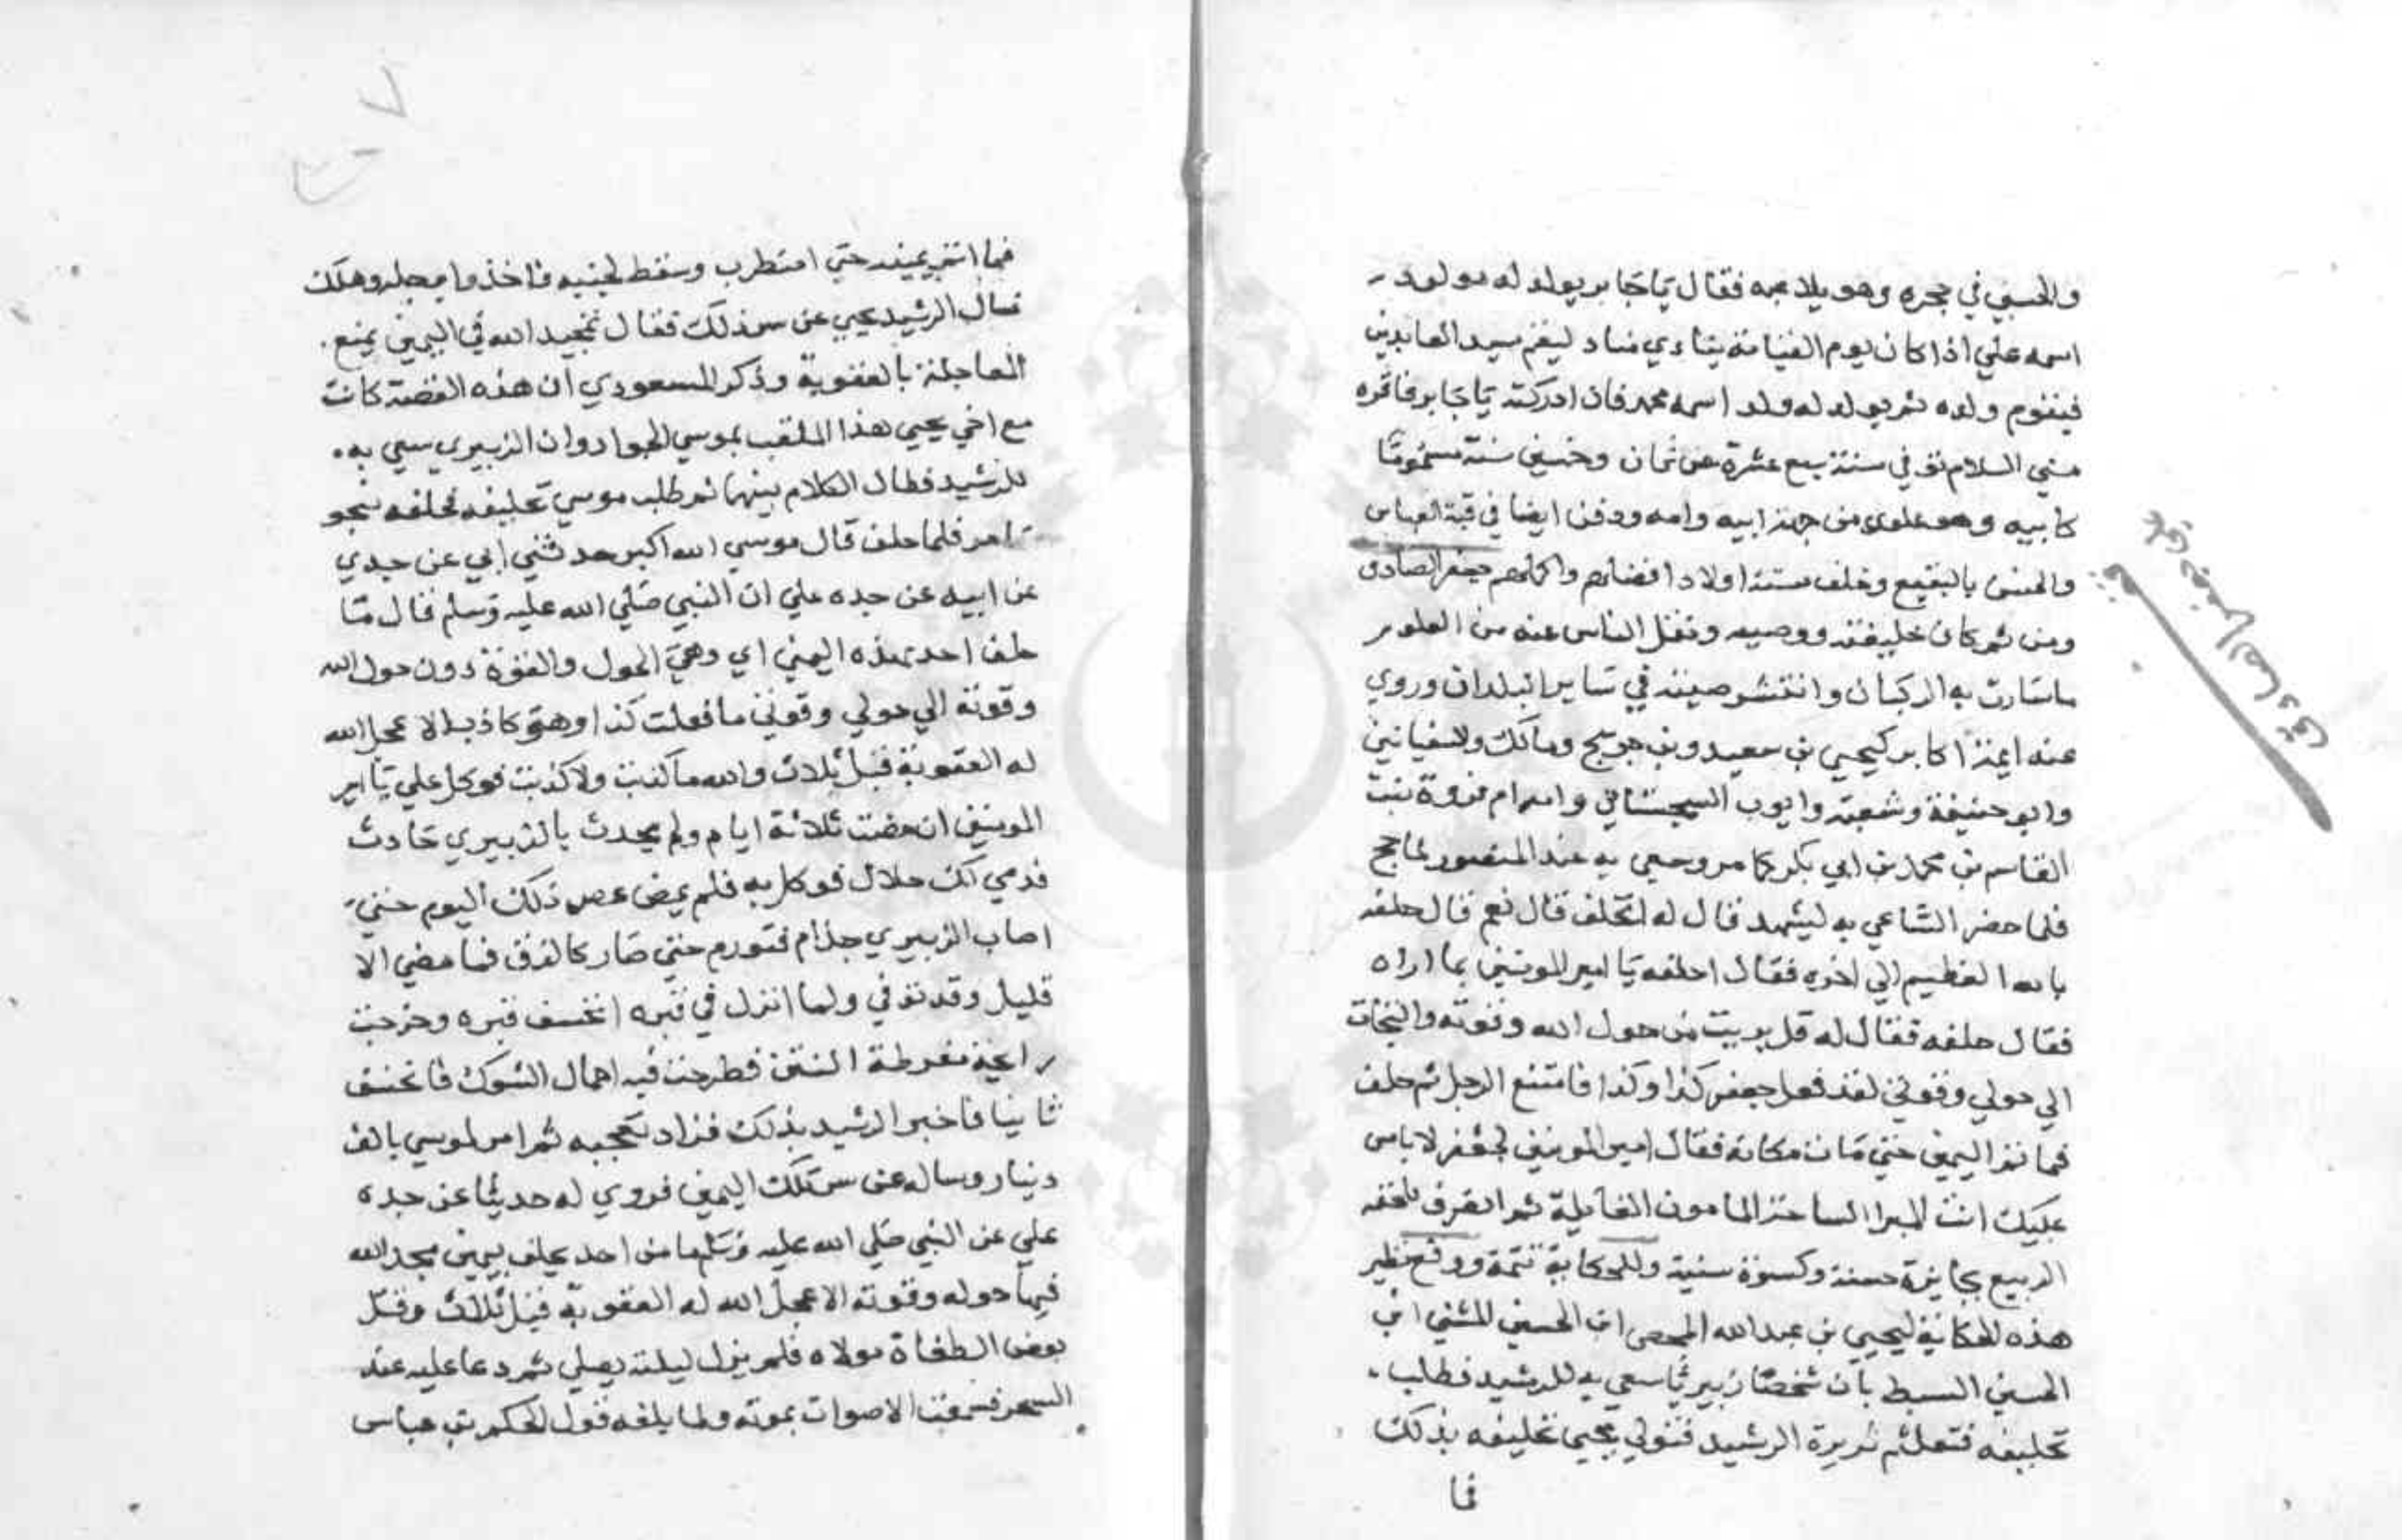 والحسين في حجره وهو يلاعبه فقال يا جابر يولد له مولود
اسمه علي اذا كان يوم القيامة ينادي مناد ليقم سيد العابدين
فيقوم ولده ثم يولد له ولد اسمه محمد فان ادركته يا جابر فاقره
مني السلام توفي سنة سبع عشرة عن ثمان وخمسين سنة مسموما
كابيه وهو علوي من جهة ابيه وامه ودفن ايضا في قبة العباس
والحسن بالبقيع وخلف ستة اولاد افضلهم واكملهم جعفر الصادق
ومن ثم كان خليفته ووصيه ونقل الناس عنه من العلوم
ماسارت به الركبان وانتشر صيته في ساير البلدان وروي
عنه ايمة اكابر كيحيي بن سعيد وبن جريج ومالك والسفيانين
وابو حنيفة وشعبة وايوب السجستاني وامه ام فروة بنت
القاسم بن محمد بن ابي بكر كما مر وسعي به عند المنصور لما حج
فلما حضر الساعي به ليشهد قال له اتحلف قال نعم قال حلفه
بالله العظيم الي اخره فقال احلفه يا امير المومنين بما اراه
فقال حلفه فقال له قل بريت من حول الله وقوته والتجات
الي حولي وقوتي لقد فعل جعفر كذا وكذا فامتنع الرجل ثم حلف
فما تم اليمين حتي مات مكانه فقال امير المومنين لجعفر لاباس
عليك انت المبرا الساحة المامون الغايلة ثم انصرف فلحقه
الربيع بجايزة حسنة وكسوة سنية وللحكاية تتمة ووقع نظير
هذه الحكاية ليحيي بن عبدالله المحص ابن الحسين المثني ابن
الحسين السبط بان شخصا زبيريا سعي به للرشيد فطلب
تحليفه فتعلثم فزبره الرشيد فتولي يحيي تحليفه بذلك
فا
جعفر الصادق
فما اتم يمينه حتي اضطرب وسقط لجنبه فاخذوا برجله وهلك
فسال الرشيد يحيي عن سر ذلك فقال تمجيد الله في اليمين يمنع
المعاجلة بالعقوبة وذكر المسعودي ان هذه القصة كانت
مع اخي يحيي هذا الملقب بموسي الجواد وان الزبيري سعي به
للرشيد فطال الكلام بينهما ثم طلب موسي تحليفه فحلفه بنحو
مامر فلما حلف قال موسي الله اكبر حدثني ابي عن جدي
عن ابيه عن جده علي ان النبي صلي الله عليه وسلم قال ما
حلف احد بهذه اليمين اي وهي الحول والقوة دون حول الله
وقوته الي حولي وقوتي ما فعلت كذا وهو كاذب الا عجل الله
له العقوبة قبل ثلاث والله ما كذبت ولا كذبت فوكل علي يا امير
المومنين ان مضت ثلاثة ايام ولم يحدث بالزبيري حادث
فدمي لك حلال فوكل به فلم يمض عصر ذلك اليوم حتي
اصاب الزبيري جذام فتورم حتي صار كالزق فما مضي الا
قليل وقد توفي ولما انزل في قبره انخسف قبره وخرجت
رايحة مفرطة النتن فطرحت فيه احمال الشوك فانخسف
ثانيا فاخبر الرشيد بذلك فزاد تعجبه ثم امر لموسي بالف
دينار وساله عن سر تلك اليمين فروي له حديثا عن جده
علي عن النبي صلي الله عليه وسلم ما من احد يحلف بيمين مجد الله
فيها حوله وقوته الا عجل الله له العقوبة قبل ثلاث وقتل
بعض الطغاة مولاه فلم يزل ليلته يصلي ثم دعا عليه عند
السحر فسمعت الاصوات بموته ولما بلغه قول الحكم بن عباس